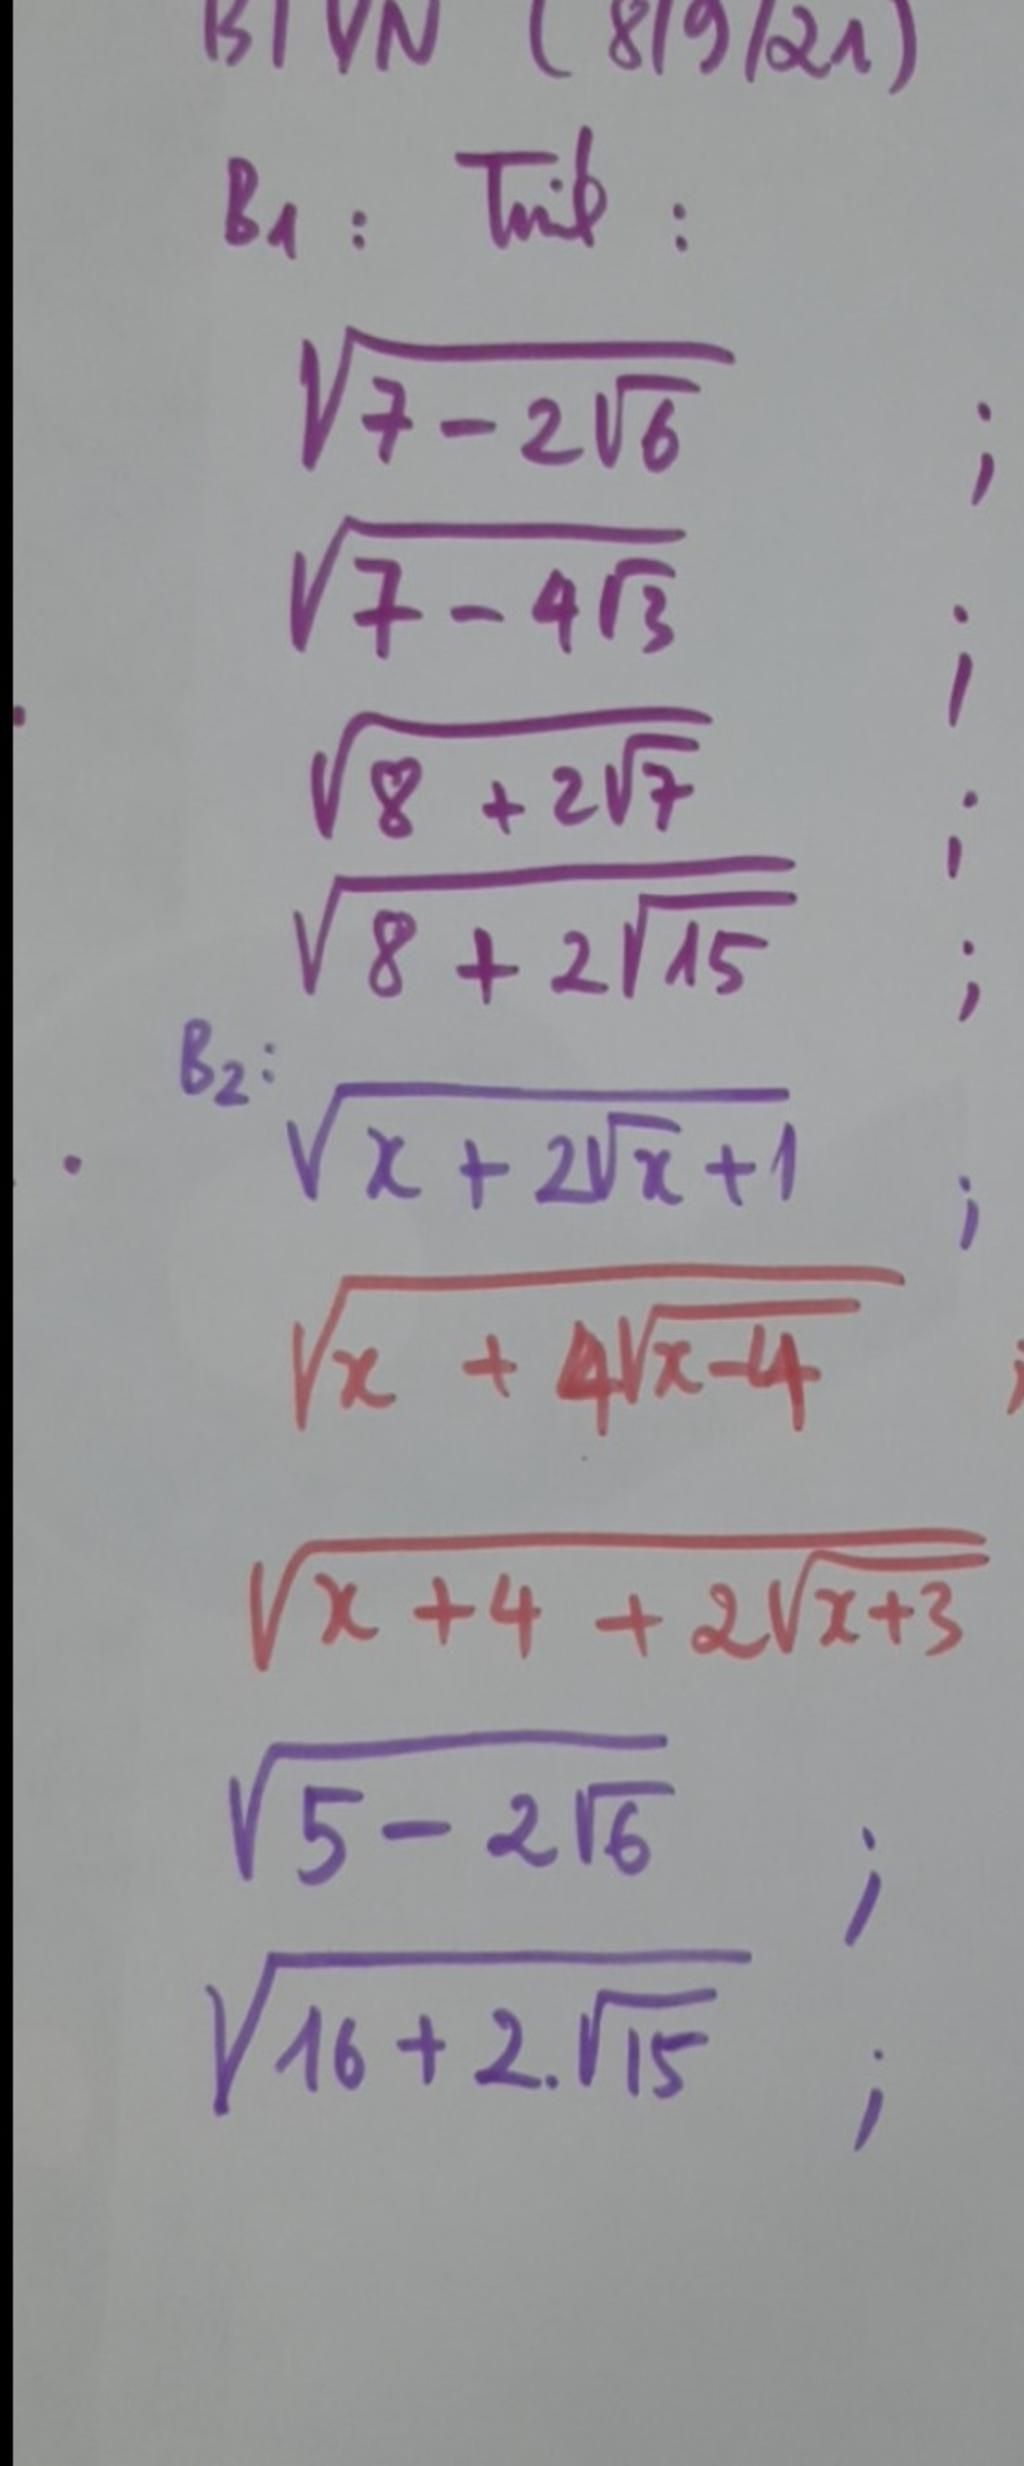 BTVN (8/9/21)
B1: Tính:
√(7 - 2√6) ;
√(7 - 4√3) ;
√(8 + 2√7) ;
√(8 + 2√15) ;
B2:
√(x + 2√x + 1) ;
√(x + 4√(x-4)) ;
√(x + 4 + 2√(x+3))
√(5 - 2√6) ;
√(16 + 2.√15) ;